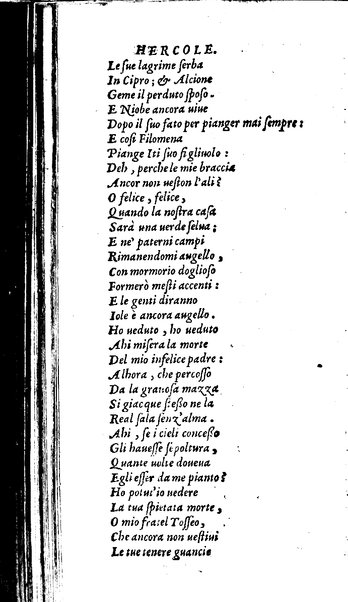 HERCOLE.
Le sue lagrime serba
In Cipro; & Alcione
Geme il perduto sposo.
E Niobe ancora uiue
Dopo il suo fato per pianger mai sempre:
E cosi Filomena
Piange Iti suo figliuolo:
Deh, perche le mie braccia
Ancor non ueston l'ali?
O felice, felice,
Quando la nostra casa
Sarà una uerde selua;
E ne' paterni campi
Rimanendomi augello,
Con mormorio doglioso
Formerò mesti accenti:
E le genti diranno
Iole è ancora augello.
Ho ueduto, ho ueduto
Ahi misera la morte
Del mio infelice padre:
Alhora, che percosso
Da la grauosa mazza
Si giacque steso ne la
Real sala senz'alma.
Ahi, se i cieli concesso
Gli hauesse sepoltura,
Quante uolte doueua
Egli esser da me pianto?
Ho potut'io uedere
La tua spietata morte,
O mio fratel Tosseo,
Che ancora non uestiui
Le tue tenere guancie